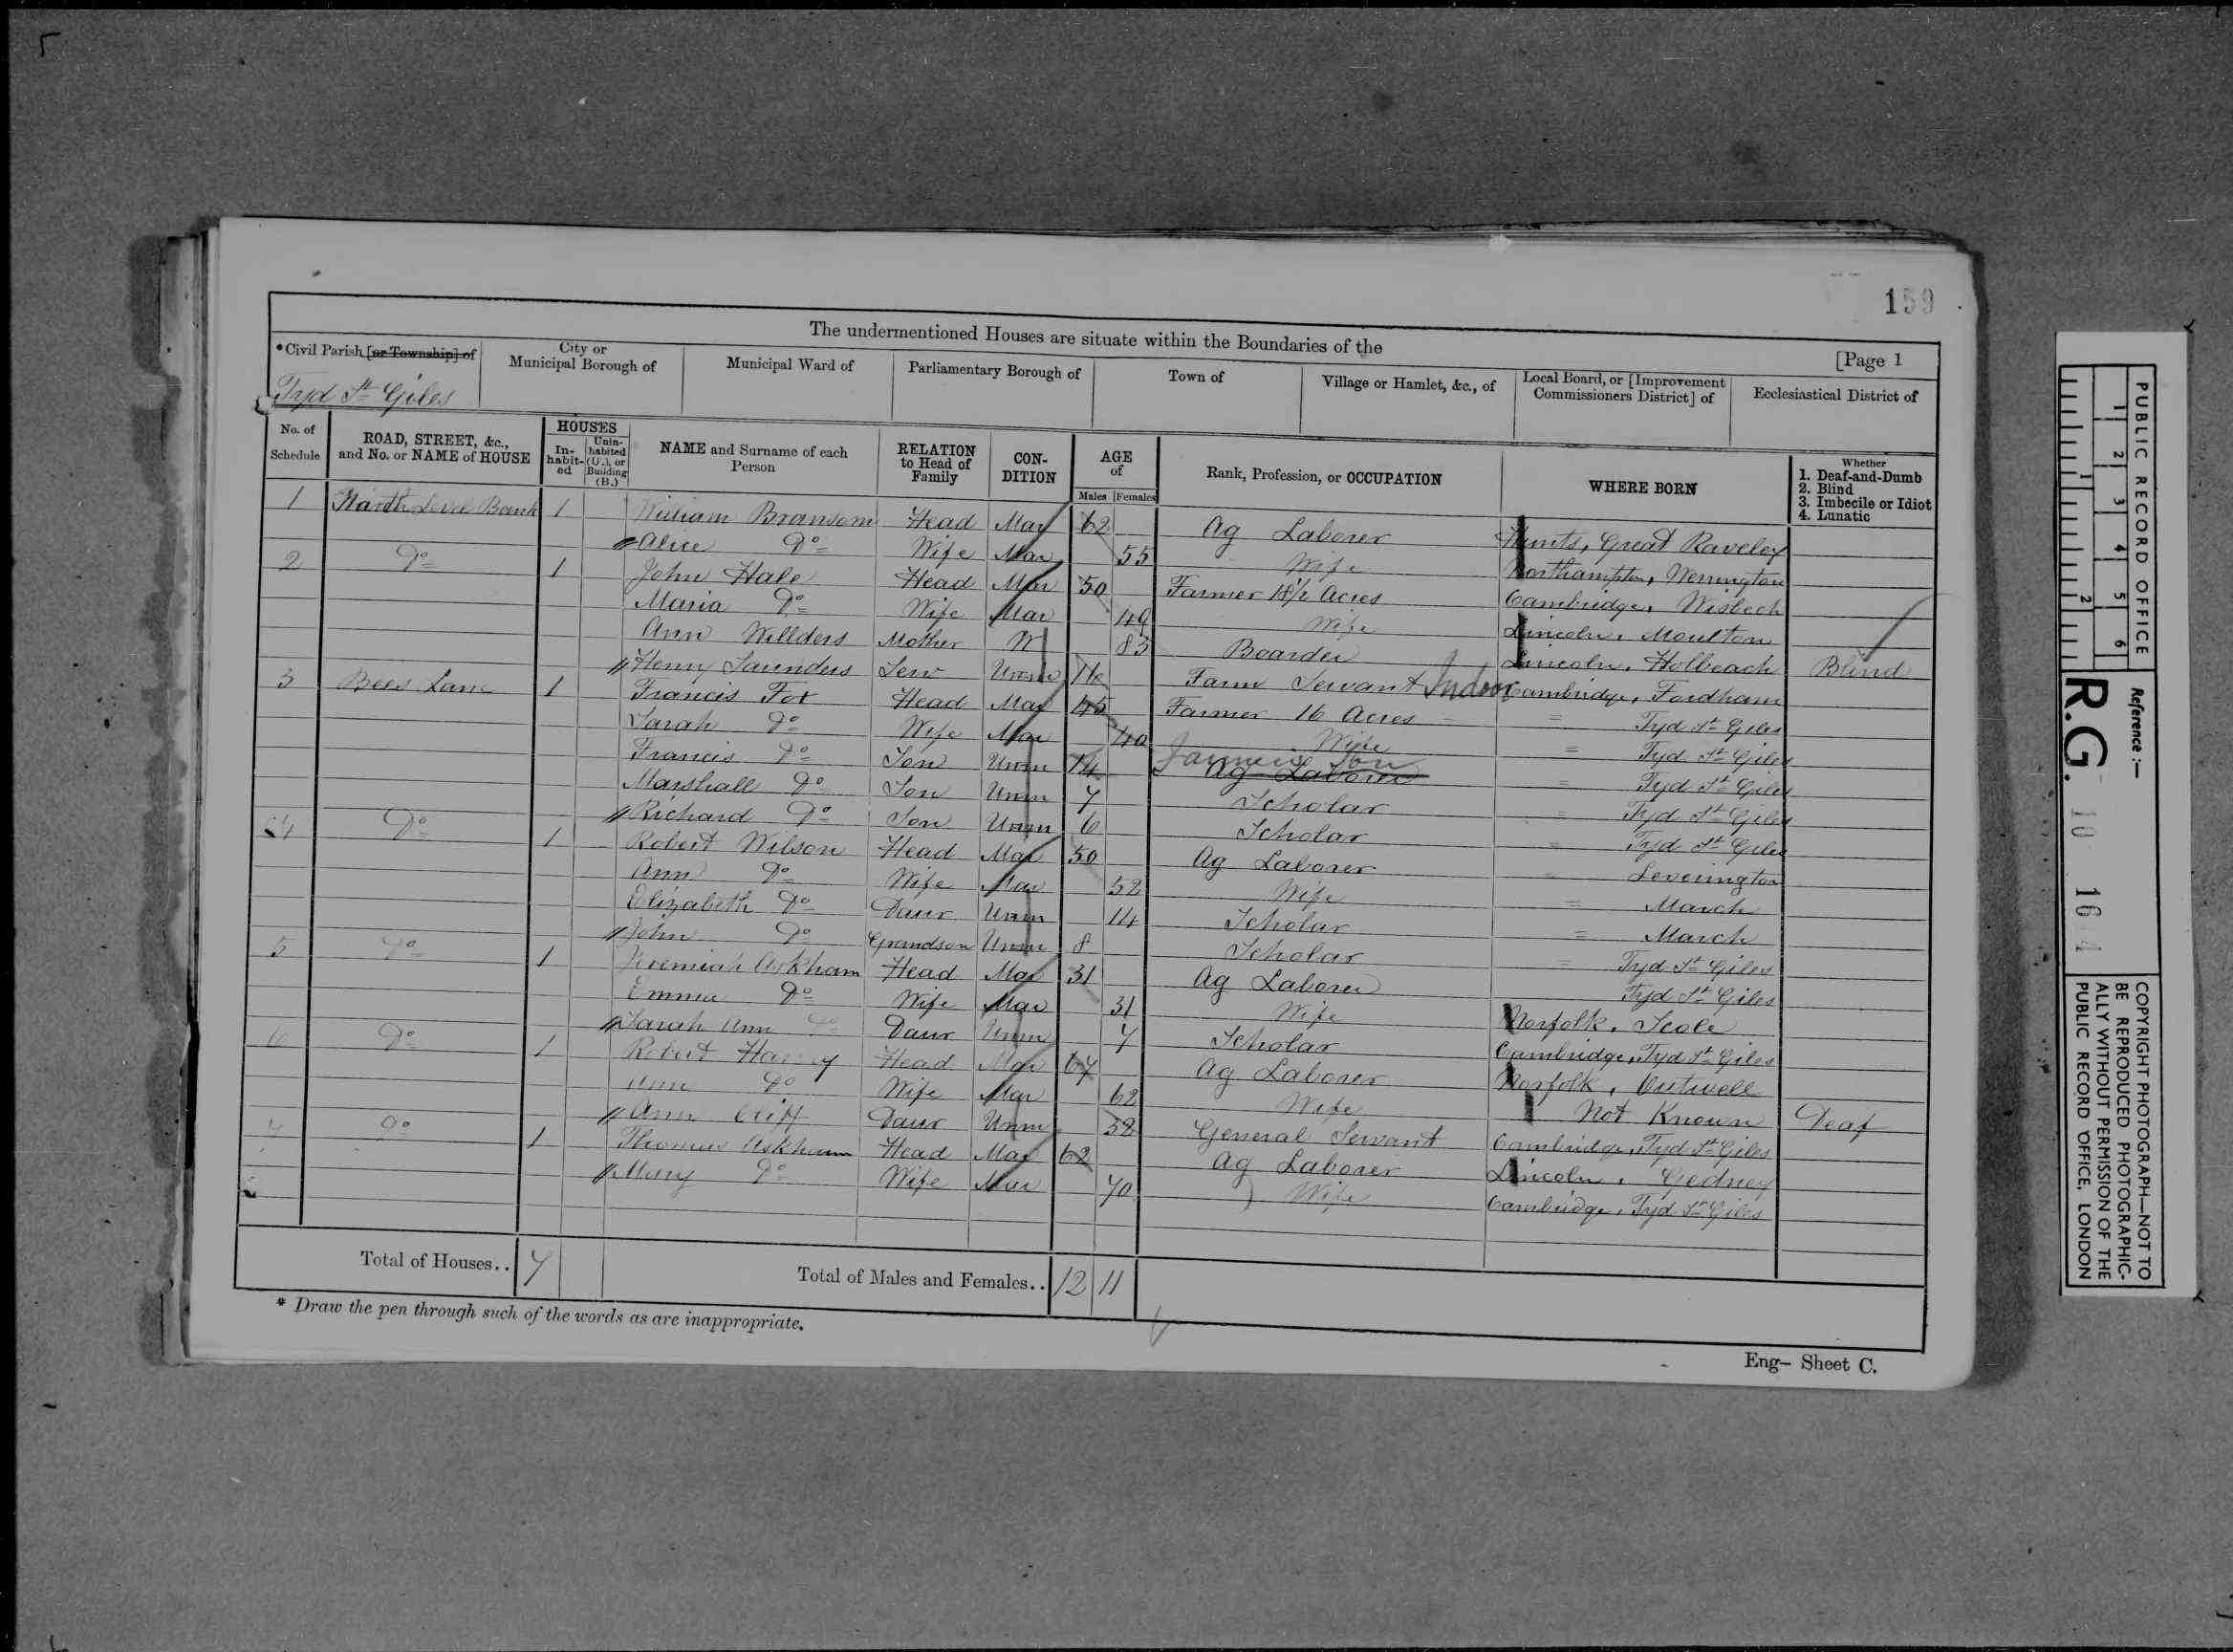 159
The undermentioned Houses are situate within the Boundaries of the
[Page 1
*Civil Parish [or Township] of
City or Municipal Borough of
Municipal Ward of
Parliamentary Borough of
Town of
Village or Hamlet, &c., of
Local Board, or [Improvement Commissioners District] of
Ecclesiastical District of
Tyd St Giles
No. of Schedule
ROAD, STREET, &c., and No. or NAME of HOUSE
HOUSES
In-habit-ed
Unin-habited (U.), or Building (B.)
NAME and Surname of each Person
RELATION to Head of Family
CON-DITION
AGE of
Males
Females
Rank, Profession, or OCCUPATION
WHERE BORN
Whether
1. Deaf-and-Dumb
2. Blind
3. Imbecile or Idiot
4. Lunatic
1 North Level Bank 1 William Bransom Head Mar 62 Ag Laborer Hunts, Great Raveley
Alice Do Wife Mar 55 Wife Northampton, Werrington
2 Do 1 John Hale Head Mar 50 Farmer 18½ Acres Cambridge, Wisbech
Maria Do Wife Mar 49 Wife Lincoln, Moulton
Ann Willders Mother W 83 Boarder Lincoln, Holbeach Blind
Henry Saunders Serv Unm 16 Farm Servant Indoor Cambridge, Fordham
3 Bees Lane 1 Francis Fox Head Mar 45 Farmer 16 Acres = Tyd St Giles
Sarah Do Wife Mar 40 Wife = Tyd St Giles
Francis Do Son Unm 14 Ag Laborer Farmer's Son = Tyd St Giles
Marshall Do Son Unm 7 Scholar = Tyd St Giles
Richard Do Son Unm 6 Scholar = Tyd St Giles
4 Do 1 Robert Wilson Head Mar 50 Ag Laborer = Leverington
Ann Do Wife Mar 52 Wife = March
Elizabeth Do Daur Unm 14 Scholar = March
John Do Grandson Unm 8 Scholar = Tyd St Giles
5 Do 1 Jeremiah Askham Head Mar 31 Ag Laborer Tyd St Giles
Emma Do Wife Mar 31 Wife Norfolk, Scole
Sarah Ann Do Daur Unm 7 Scholar Cambridge, Tyd St Giles
6 Do 1 Robert Harvey Head Mar 67 Ag Laborer Norfolk, Outwell
Ann Do Wife Mar 62 Wife Not Known Deaf
Ann Daur Unm General Servant Cambridge, Tyd St Giles
7 Do 1 Thomas Askham Head Mar 62 Ag Laborer Lincoln, Gedney
Mary Do Wife Mar 70 Wife Cambridge, Tyd St Giles
Total of Houses.. 7
Total of Males and Females.. 12 11
* Draw the pen through such of the words as are inappropriate.
Eng- Sheet C.
PUBLIC RECORD OFFICE
1 2 3 4 5 6
1 2
Reference :-
R.G. 10
COPYRIGHT PHOTOGRAPH—NOT TO
BE REPRODUCED PHOTOGRAPHIC-
ALLY WITHOUT PERMISSION OF THE
PUBLIC RECORD OFFICE, LONDON